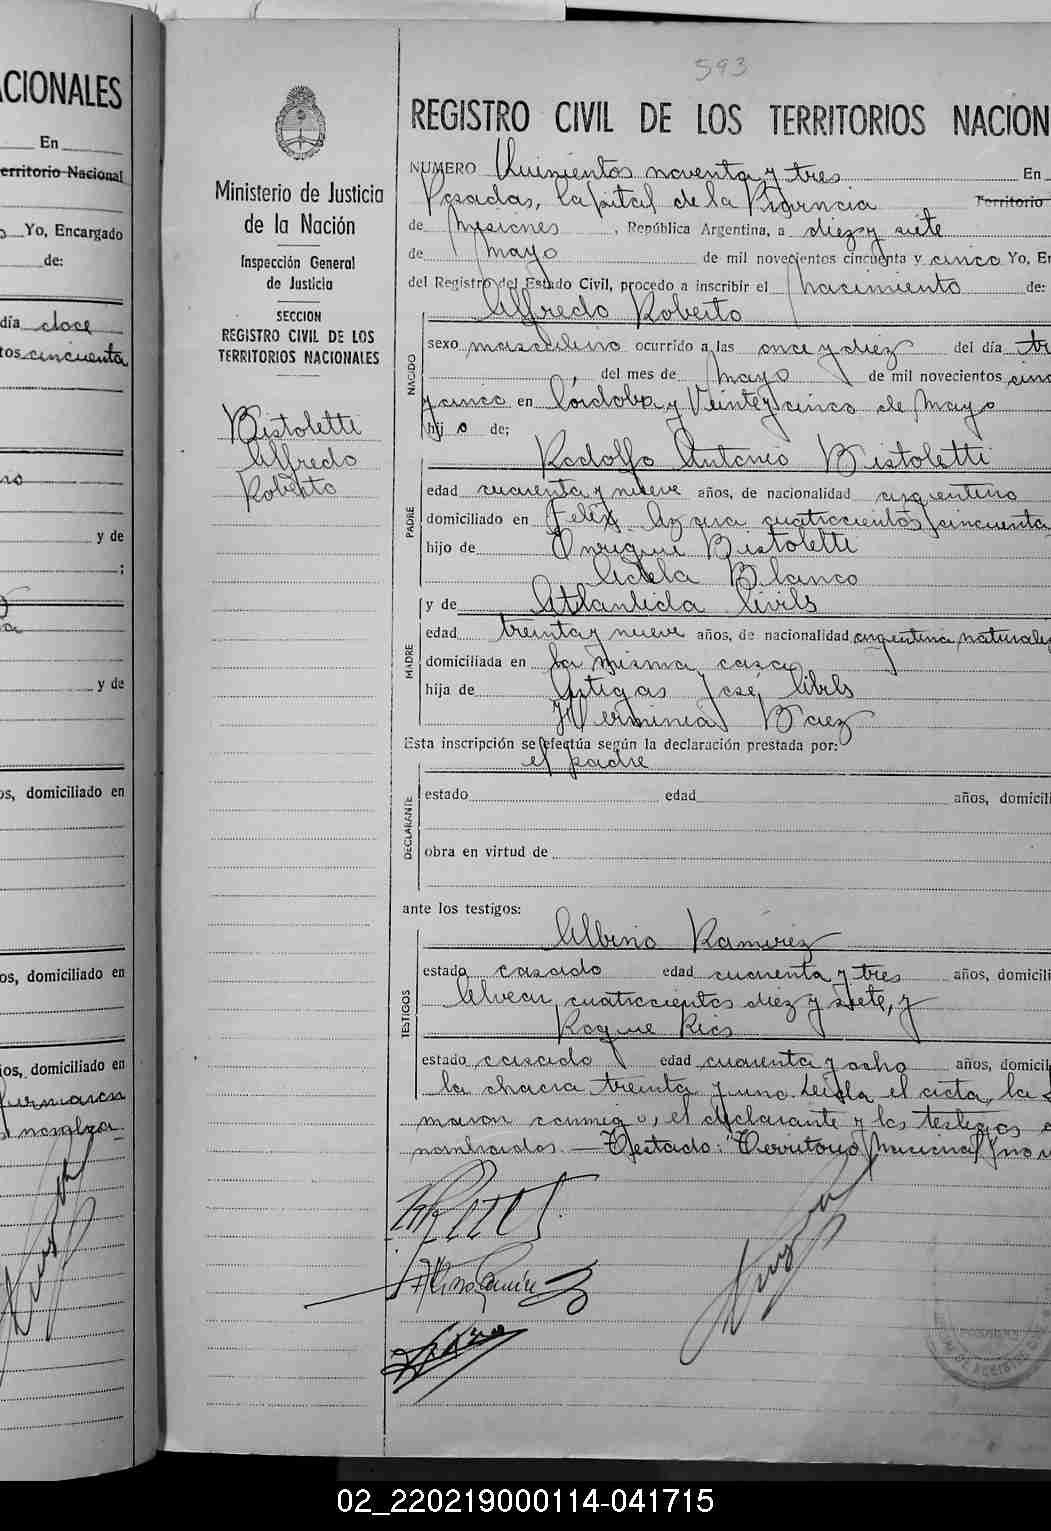 593
ACIONALES
En
erritorio Nacional
Yo, Encargado
de:
día doce
tos cincuenta
y de
;
y de
os, domiciliado en
os, domiciliado en
ios, domiciliado en
Ministerio de Justicia
de la Nación
Inspección General
de Justicia
SECCION
REGISTRO CIVIL DE LOS
TERRITORIOS NACIONALES
Bistoletti
Alfredo
Roberto
REGISTRO CIVIL DE LOS TERRITORIOS NACION
NUMERO Quinientos noventa y tres En
Posadas, Capital de la Provincia Territorio
de Misiones, República Argentina, a diez y siete
de mayo de mil novecientos cincuenta y cinco Yo, En
del Registro del Estado Civil, procedo a inscribir el nacimiento de:
NACIDO
Alfredo Roberto
sexo masculino ocurrido a las once y diez del día
, del mes de mayo de mil novecientos cinc
y cinco en Córdoba y Veinte y cinco de Mayo
hijo de;
PADRE
Rodolfo Antonio Bistoletti
edad cuarenta y nueve años, de nacionalidad argentino
domiciliado en Felix Azara cuatrocientos cincuenta
hijo de Enrique Bistoletti
Adela Blanco
MADRE
y de Atlantida Civils
edad treinta y nueve años, de nacionalidad argentina naturaliz
domiciliada en la misma casa
hija de Artigas José Cibils
Herminia Baez
Esta inscripción se efectúa según la declaración prestada por:
el padre
DECLARANTE
estado edad años, domicili
obra en virtud de
ante los testigos:
TESTIGOS
Albino Ramirez
estado casado edad cuarenta y tres años, domicili
Alvear, cuatrocientos diez y siete, y
Roque Rios
estado casado edad cuarenta y ocho años, domicil
la chacra treinta y uno. Leida el acta, la
maron conmigo, el declarante y los testigos
nombrados. — Testado: "Territorio Nacional" no
02_220219000114-041715